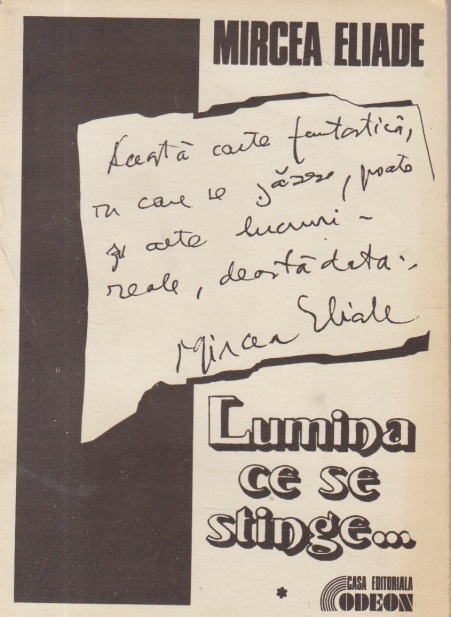 MIRCEA ELIADE
Această carte fantastică,
în care se găsesc, poate
și alte lucruri –
reale, deastădată.
Mircea Eliade
Lumina
ce se
stinge...
*
CASA EDITORIALA
ODEON